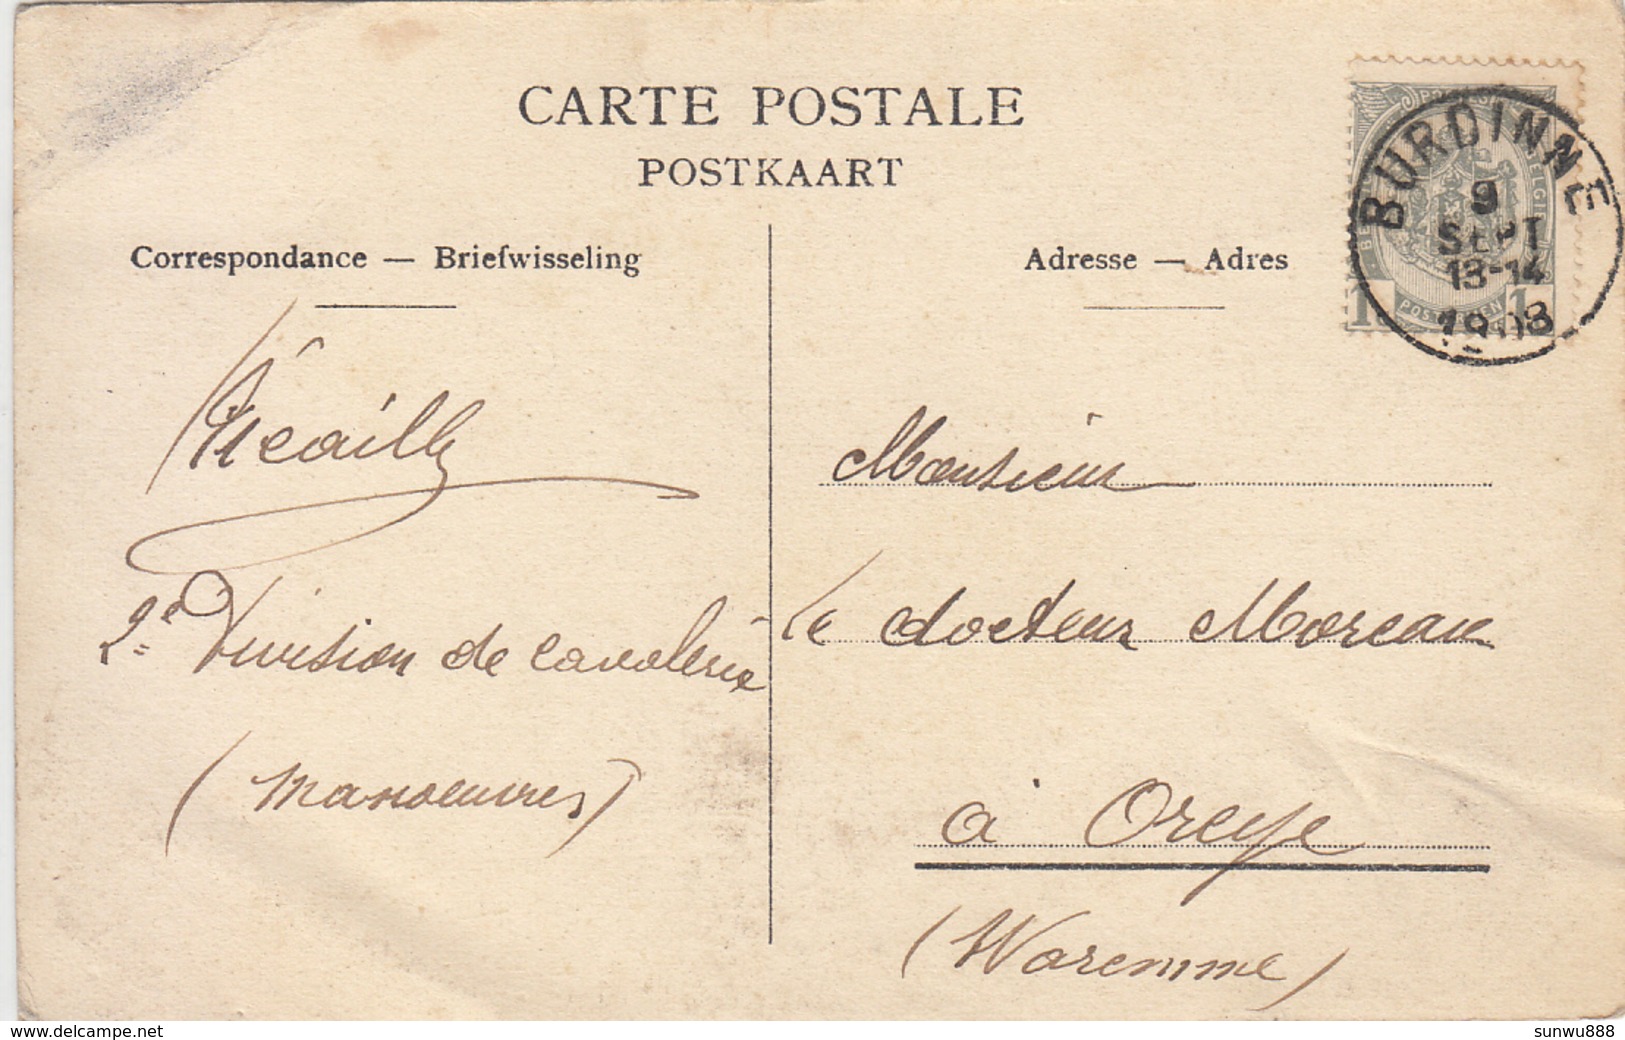 CARTE POSTALE
POSTKAART
Correspondance — Briefwisseling
2e Division de Cavalerie
(Manoeuvres)
Adresse — Adres
BURDINNE
9
SEPT
13-14
1908
1 1
Monsieur
Le docteur Moreau
à Oreye
(Waremme)
www.delcampe.net
sunwu888